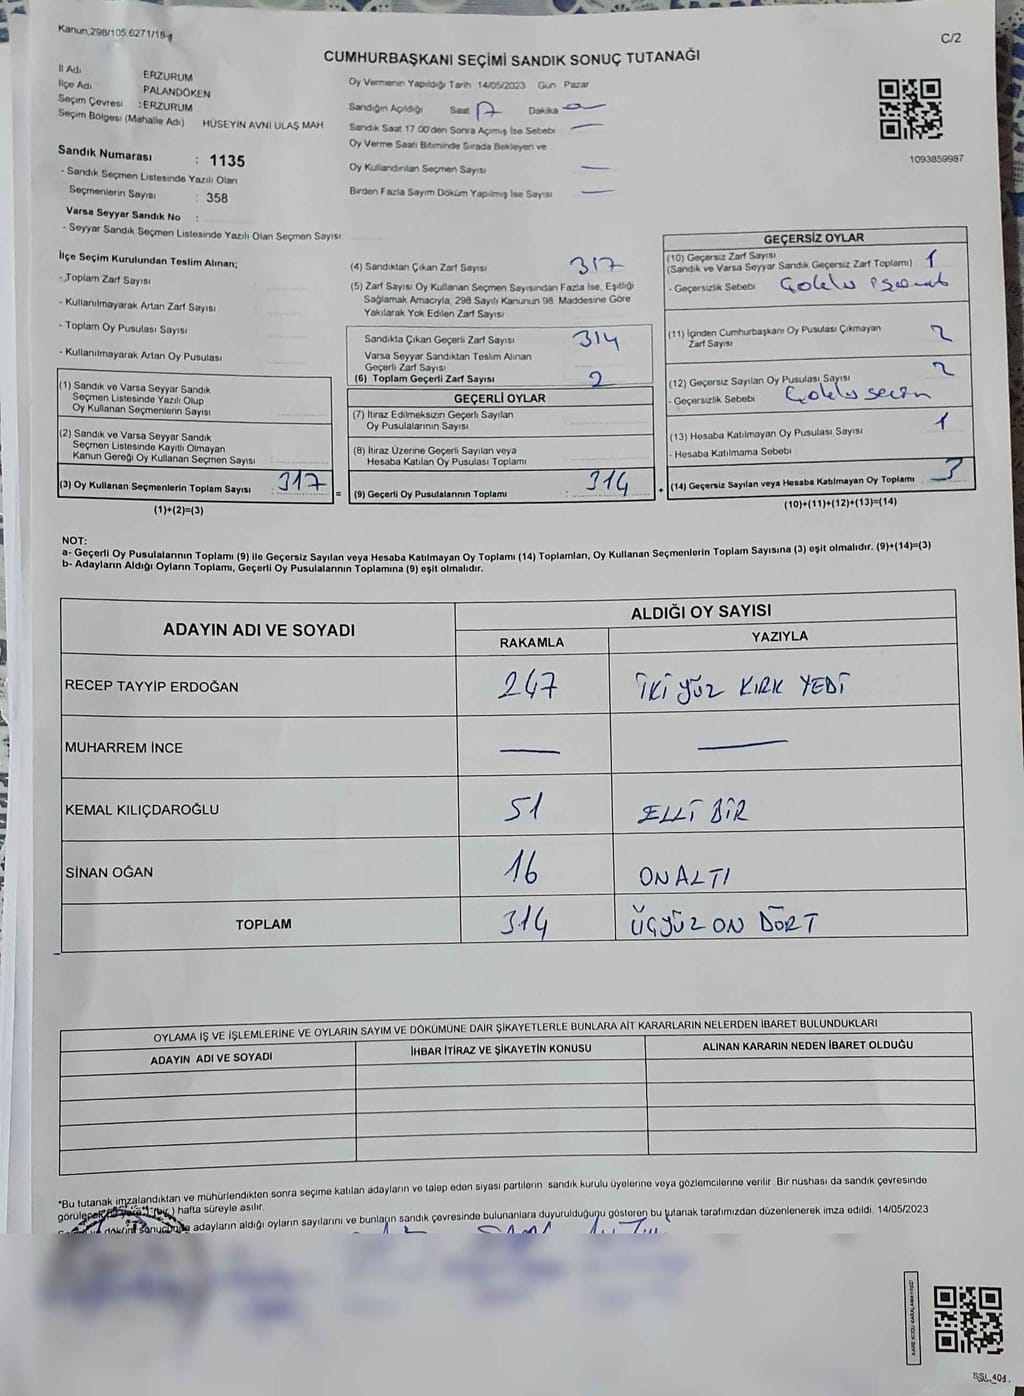 Kanun,298/105,6271/18-1
C/2
CUMHURBAŞKANI SEÇİMİ SANDIK SONUÇ TUTANAĞI
İl Adı ERZURUM
İlçe Adı PALANDÖKEN
Seçim Çevresi : ERZURUM
Seçim Bölgesi (Mahalle Adı) HÜSEYİN AVNİ ULAŞ MAH
Sandık Numarası : 1135
- Sandık Seçmen Listesinde Yazılı Olan
Seçmenlerin Sayısı : 358
Varsa Seyyar Sandık No :
- Seyyar Sandık Seçmen Listesinde Yazılı Olan Seçmen Sayısı
Oy Vermenin Yapıldığı Tarih 14/05/2023 Gün Pazar
Sandığın Açıldığı Saat 17 Dakika —
Sandık Saat 17.00'den Sonra Açımış İse Sebebi —
Oy Verme Saati Bitiminde Sırada Bekleyen ve
Oy Kullandırılan Seçmen Sayısı —
Birden Fazla Sayım Döküm Yapılmış İse Sayısı —
1093859987
İlçe Seçim Kurulundan Teslim Alınan;
- Toplam Zarf Sayısı
- Kullanılmayarak Artan Zarf Sayısı
- Toplam Oy Pusulası Sayısı
- Kullanılmayarak Artan Oy Pusulası
(1) Sandık ve Varsa Seyyar Sandık
Seçmen Listesinde Yazılı Olup
Oy Kullanan Seçmenlerin Sayısı
(2) Sandık ve Varsa Seyyar Sandık
Seçmen Listesinde Kayıtlı Olmayan
Kanun Gereği Oy Kullanan Seçmen Sayısı :
(3) Oy Kullanan Seçmenlerin Toplam Sayısı : 317
(1)+(2)=(3)
(4) Sandıktan Çıkan Zarf Sayısı 317
(5) Zarf Sayısı Oy Kullanan Seçmen Sayısından Fazla İse, Eşitliği
Sağlamak Amacıyla; 298 Sayılı Kanunun 98. Maddesine Göre
Yakılarak Yok Edilen Zarf Sayısı
Sandıkta Çıkan Geçerli Zarf Sayısı 314
Varsa Seyyar Sandıktan Teslim Alınan
Geçerli Zarf Sayısı
(6) Toplam Geçerli Zarf Sayısı 2
GEÇERLİ OYLAR
(7) İtiraz Edilmeksizin Geçerli Sayılan
Oy Pusulalarının Sayısı
(8) İtiraz Üzerine Geçerli Sayılan veya
Hesaba Katılan Oy Pusulası Toplamı
= (9) Geçerli Oy Pusulalarının Toplamı : 314
GEÇERSİZ OYLAR
(10) Geçersiz Zarf Sayısı 1
(Sandık ve Varsa Seyyar Sandık Geçersiz Zarf Toplamı)
- Geçersizlik Sebebi
(11) İçinden Cumhurbaşkanı Oy Pusulası Çıkmayan 2
Zarf Sayısı
(12) Geçersiz Sayılan Oy Pusulası Sayısı 2
- Geçersizlik Sebebi
(13) Hesaba Katılmayan Oy Pusulası Sayısı 1
- Hesaba Katılmama Sebebi
+ (14) Geçersiz Sayılan veya Hesaba Katılmayan Oy Toplamı : 3
(10)+(11)+(12)+(13)=(14)
NOT:
a- Geçerli Oy Pusulalarının Toplamı (9) ile Geçersiz Sayılan veya Hesaba Katılmayan Oy Toplamı (14) Toplamları, Oy Kullanan Seçmenlerin Toplam Sayısına (3) eşit olmalıdır. (9)+(14)=(3)
b- Adayların Aldığı Oyların Toplamı, Geçerli Oy Pusulalarının Toplamına (9) eşit olmalıdır.
ADAYIN ADI VE SOYADI
ALDIĞI OY SAYISI
RAKAMLA YAZIYLA
RECEP TAYYİP ERDOĞAN 247 İKİ YÜZ KIRK YEDİ
MUHARREM İNCE — —
KEMAL KILIÇDAROĞLU 51 ELLİ BİR
SİNAN OĞAN 16 ON ALTI
TOPLAM 314 ÜÇYÜZ ON DÖRT
OYLAMA İŞ VE İŞLEMLERİNE VE OYLARIN SAYIM VE DÖKÜMÜNE DAİR ŞİKAYETLERLE BUNLARA AİT KARARLARIN NELERDEN İBARET BULUNDUKLARI
ADAYIN ADI VE SOYADI İHBAR İTİRAZ VE ŞİKAYETİN KONUSU ALINAN KARARIN NEDEN İBARET OLDUĞU
*Bu tutanak imzalandıktan ve mühürlendikten sonra seçime katılan adayların ve talep eden siyasi partilerin sandık kurulu üyelerine veya gözlemcilerine verilir. Bir nüshası da sandık çevresinde
hafta süreyle asılır.
adayların aldığı oyların sayılarını ve bunların sandık çevresinde bulunanlara duyurulduğunu gösteren bu tutanak tarafımızdan düzenlenerek imza edildi. 14/05/2023